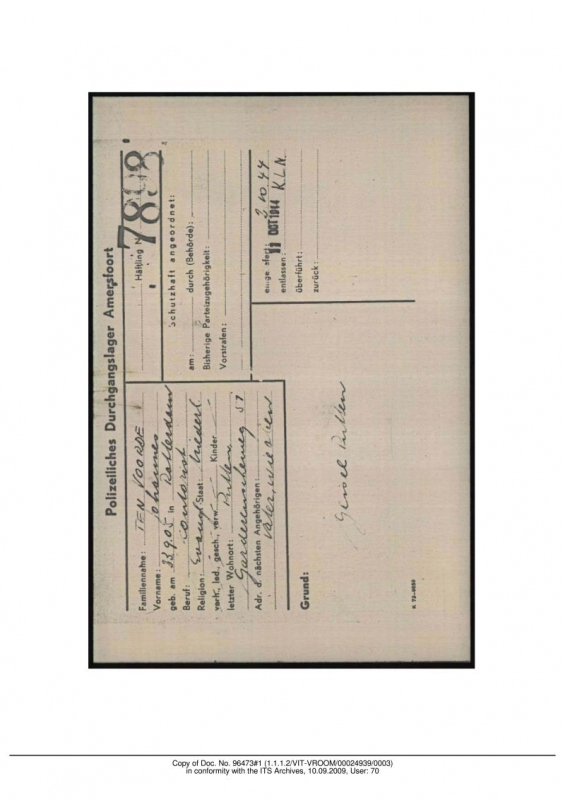 Polizeiliches Durchgangslager Amersfoort
Familienname: TEN VOORDE
Vorname: Johannes
geb. am 9.05 in Rotterdam
Beruf:
Religion: Evang Staat: Niederl.
verh., led., gesch., verw. Kinder —
letzter Wohnort: Putten
Garderenscheweg 57
Adr. d. nächsten Angehörigen:
Vater, wie oben
Grund:
Geisel Putten
K 73-4959
Häftling N 7898
Schutzhaft angeordnet:
am: durch (Behörde):
Bisherige Parteizugehörigkeit:
Vorstrafen:
2 10 44
entlassen: 11 OCT 1944 K.L.N.
überführt:
zurück:
Copy of Doc. No. 96473#1 (1.1.1.2/VIT-VROOM/00024939/0003)
in conformity with the ITS Archives, 10.09.2009, User: 70